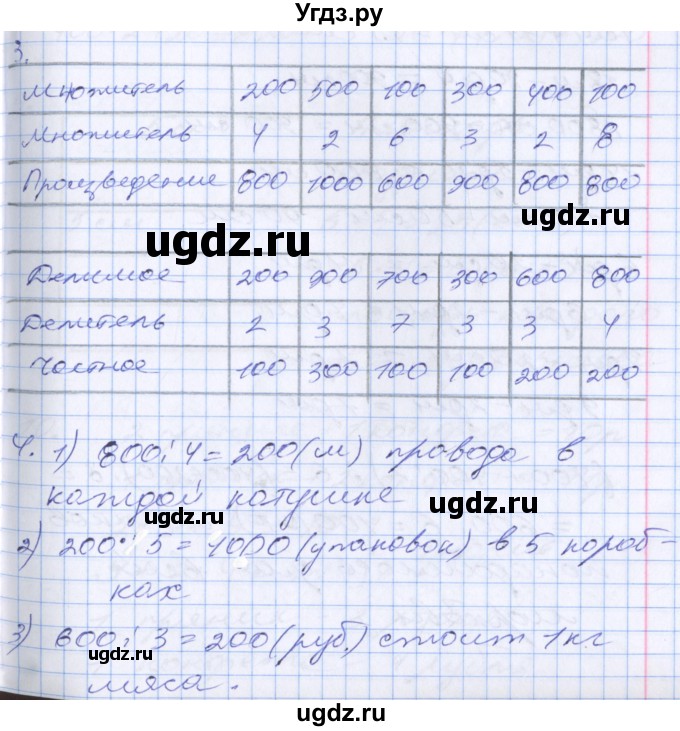 Угдз.ру
3.
Множитель 200 500 100 300 400 100
Множитель 4 2 6 3 2 8
Произведение 800 1000 600 900 800 800
ugdz.ru
ugdz.ru
Делимое 200 900 700 300 600 800
Делитель 2 3 7 3 3 4
Частное 100 300 100 100 200 200
4. 1) 800:4=200(м) провода в
каждой катушке
ugdz.ru
2) 200·5=1000(упаковок) в 5 короб-
ках
3) 600:3=200(руб.) стоит 1кг
ugdz.ru
мяса.
ugdz.ru
ugdz.ru